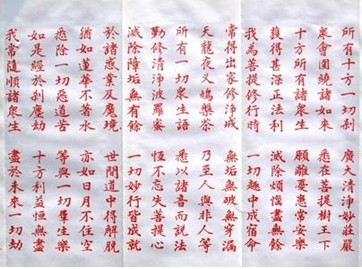 所有十方一切剎　廣大清淨妙莊嚴
眾會圍繞諸如來　悉在菩提樹王下
十方所有諸眾生　願離憂患常安樂
獲得甚深正法利　滅除煩惱盡無餘
我為菩提修行時　一切趣中成宿命
常得出家修淨戒　無垢無破無穿漏
天龍夜叉鳩槃荼　乃至人與非人等
所有一切眾生語　悉以諸音而說法
勤修清淨波羅蜜　恒不忘失菩提心
滅除障垢無有餘　一切妙行皆成就
於諸惑業及魔境　世間道中得解脫
猶如蓮華不著水　亦如日月不住空
悉除一切惡道苦　等與一切羣生樂
如是經於剎塵劫　十方利益恒無盡
我常隨順諸眾生　盡於未來一切劫